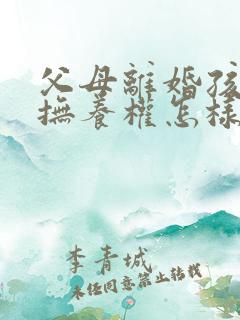 父母離婚孩
撫養權怎樣
李青城
未经同意禁止转载